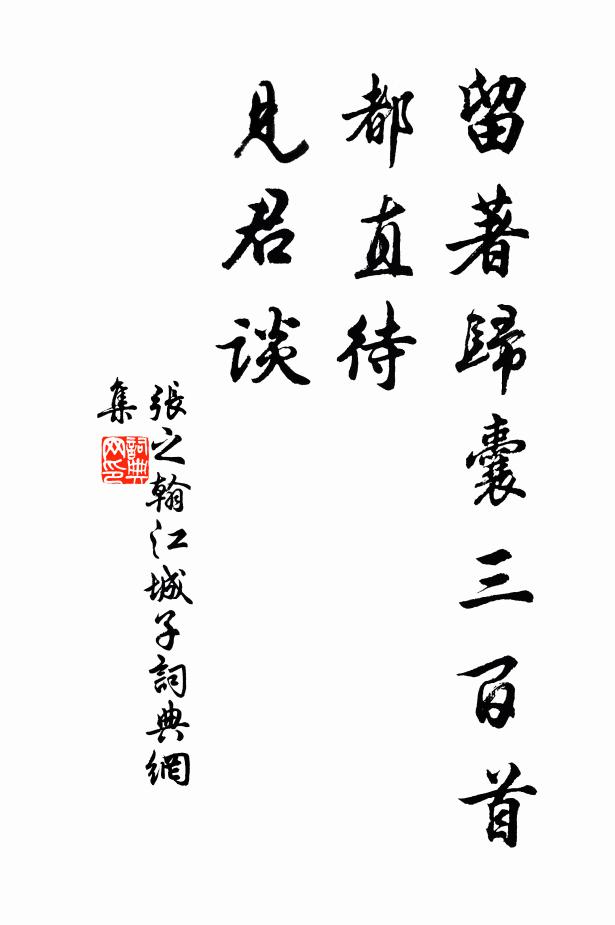 留著歸囊三百首
都直待
見君談
張之翰江城子詞典網
集
詞典
网印